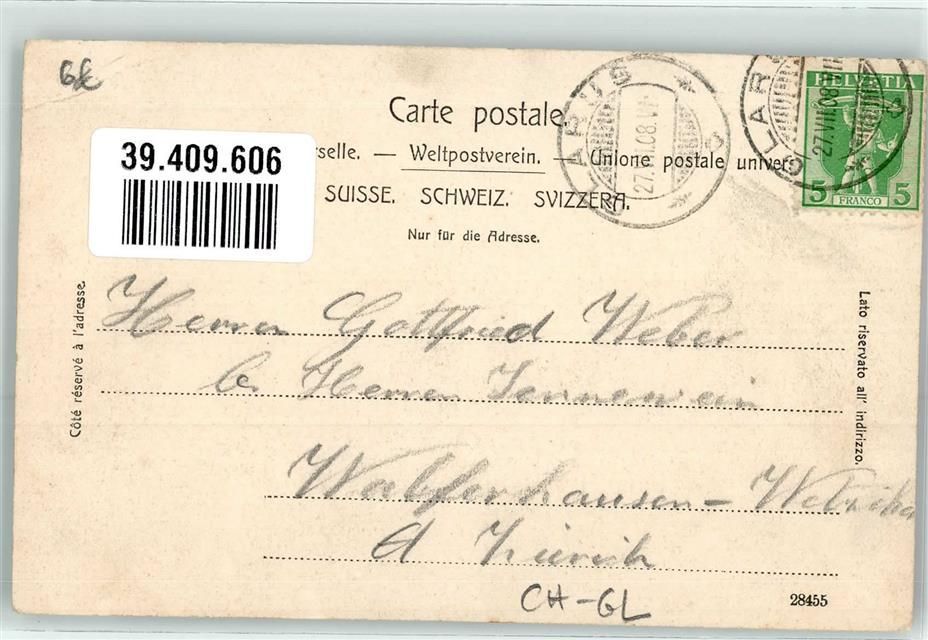 6k
Carte postale.
39.409.606
rselle. — Weltpostverein. — Unione postale univer
SUISSE. SCHWEIZ. SVIZZERA.
Nur für die Adresse.
GLARUS
27.VII.08.VII
GLAR
27.VII.08
HELVETIA
5 FRANCO 5
Côté réservé à l'adresse.
Lato riservato all' indirizzo.
Herren Gottfried Weber
be Herren Jennewein
Zürich
CH-GL
28455